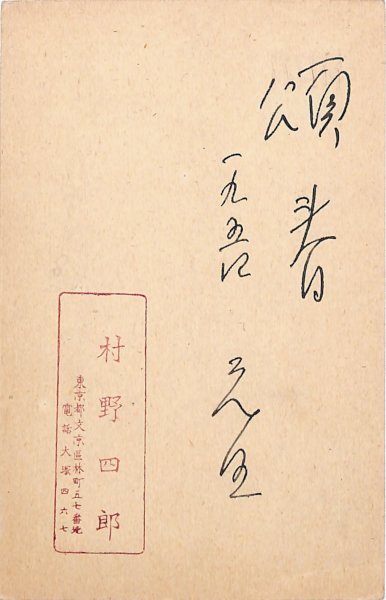 頌春
一九五 元旦
村野四郎
東京都文京區林町五七番地
電話大塚四六七